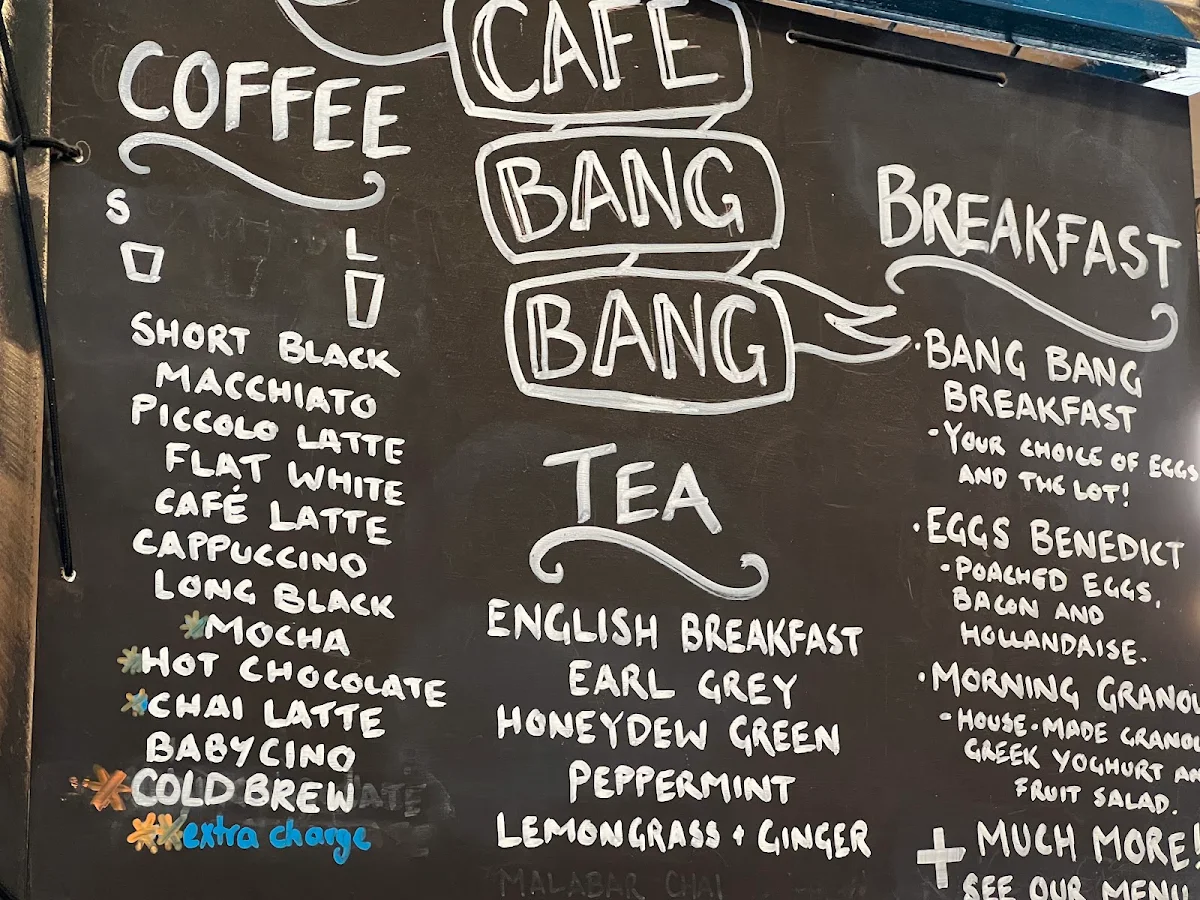 CAFE
BANG
BANG
COFFEE
S
L
SHORT BLACK
MACCHIATO
PICCOLO LATTE
FLAT WHITE
CAFÉ LATTE
CAPPUCCINO
LONG BLACK
*MOCHA
*HOT CHOCOLATE
*CHAI LATTE
BABYCINO
*COLD BREW
**extra charge
TEA
ENGLISH BREAKFAST
EARL GREY
HONEYDEW GREEN
PEPPERMINT
LEMONGRASS + GINGER
MALABAR CHAI
BREAKFAST
·BANG BANG
BREAKFAST
-YOUR CHOICE OF EGGS
AND THE LOT!
·EGGS BENEDICT
-POACHED EGGS,
BACON AND
HOLLANDAISE.
·MORNING GRANOL
-HOUSE-MADE GRANOL
GREEK YOGHURT AN
FRUIT SALAD.
+ MUCH MORE!
SEE OUR MENU